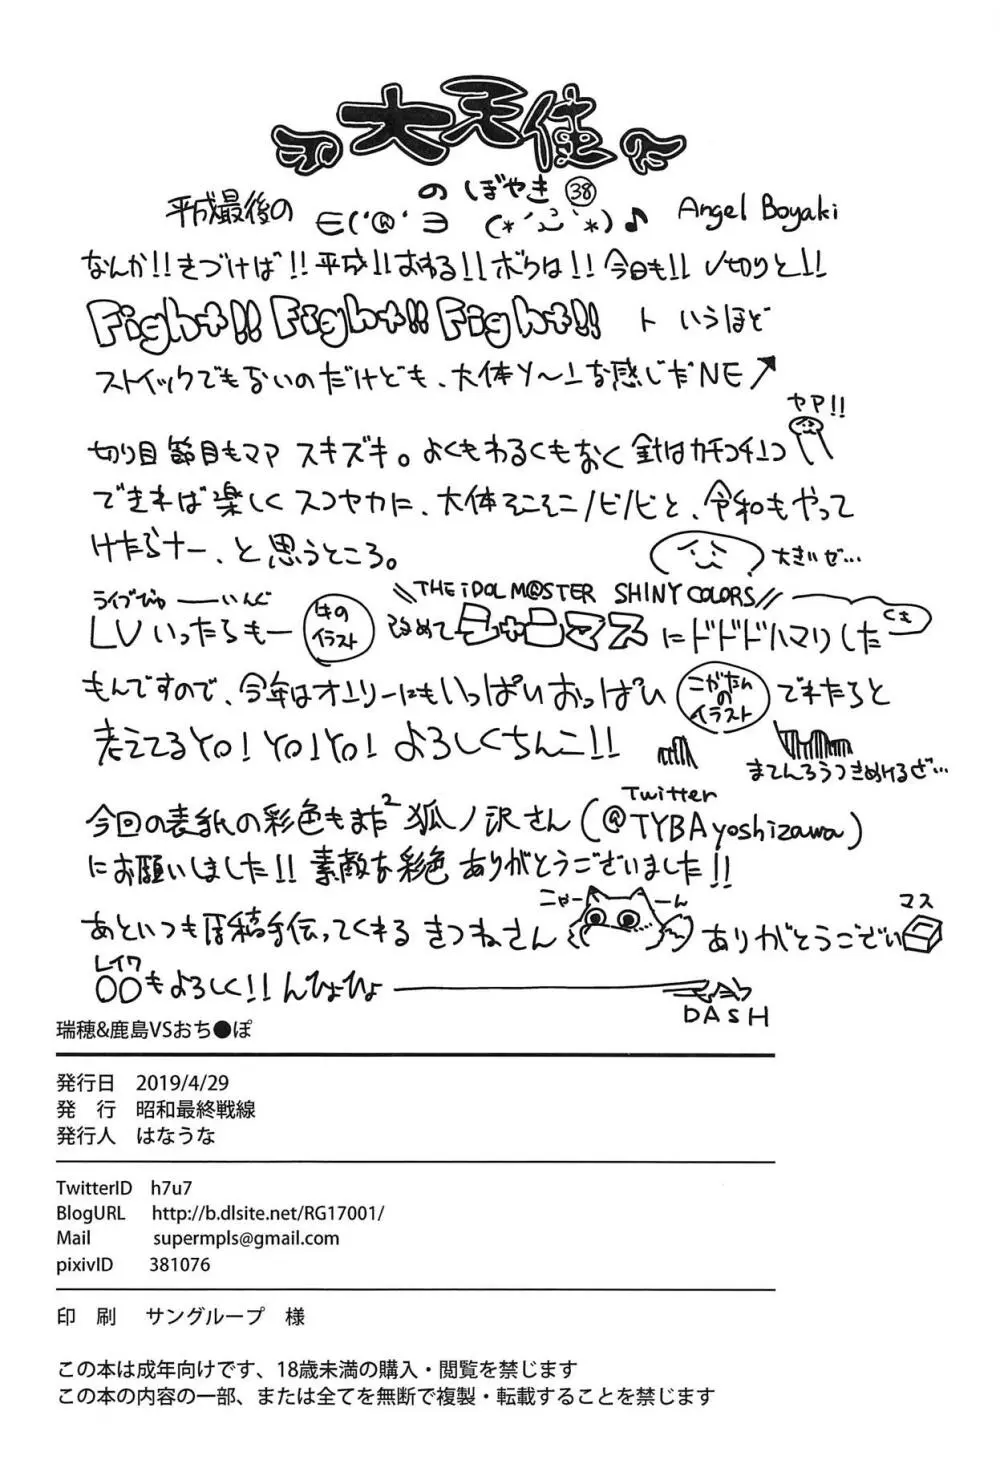 大天使
のぼやき 38
平成最後の ∈('@'∋ (*´ω`*)♪ Angel Boyaki
なんか!!きづけば!!平成!!おわる!!ボクは!!今日も!!〆切りと!!
Fight!! Fight!! Fight!! ト いうほど
ストイックでもないのだけども、大体ソ〜ユーな感じだNE↗
ヤア!!
切り目節目もマアスキズキ。よくもわるくもなく針はカチコチユーつ
できれば楽しくスコヤカに、大体そこそこノビノビと、令和もやって
けたらナー、と思うところ。
大きいぜ…
ライブびゅーーいんぐ
\\THE iDOLM@STER SHINY COLORS//
LVいったらもー 牛のイラスト 改めてシャニマスにドドドハマりした
くも
もんですので、今年はオンリーにもいっぱいおっぱい こがたんのイラスト でれたらと
考えてるYO!YO!YO!よろしくちんこ!!
まてんろうつきぬけるぜ…
Twitter
今回の表紙の彩色もまた2狐ノ沢さん(@TYBAyoshizawa)
にお願いしました!!素敵な彩色ありがとうございました!!
こゃーーん
マス
あといつも原稿手伝ってくれるきつねさん ありがとうござい
レイワ
〇〇もよろしく!!んひょひょ
DASH
瑞穂&鹿島VSおち●ぽ
発行日 2019/4/29
発 行 昭和最終戦線
発行人 はなうな
TwitterID h7u7
BlogURL http://b.dlsite.net/RG17001/
Mail supermpls@gmail.com
pixivID 381076
印 刷 サングループ 様
この本は成年向けです、18歳未満の購入・閲覧を禁じます
この本の内容の一部、または全てを無断で複製・転載することを禁じます